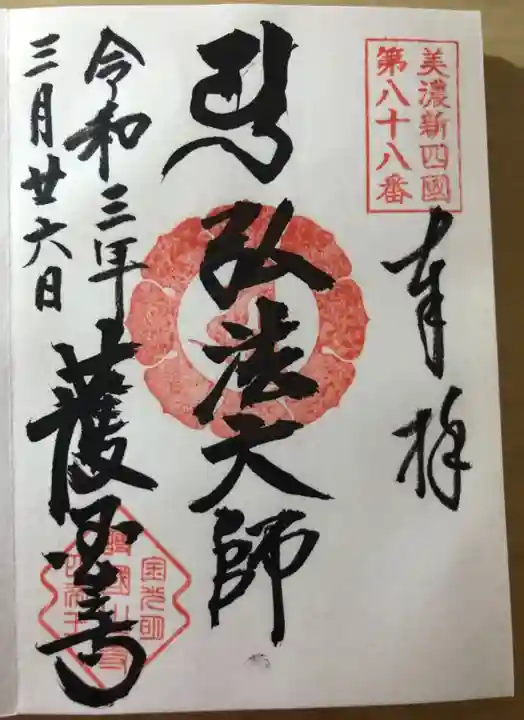 美濃新四國
第八十八番
奉拜
弘法大師
護国寺
令和三年
三月廿六日